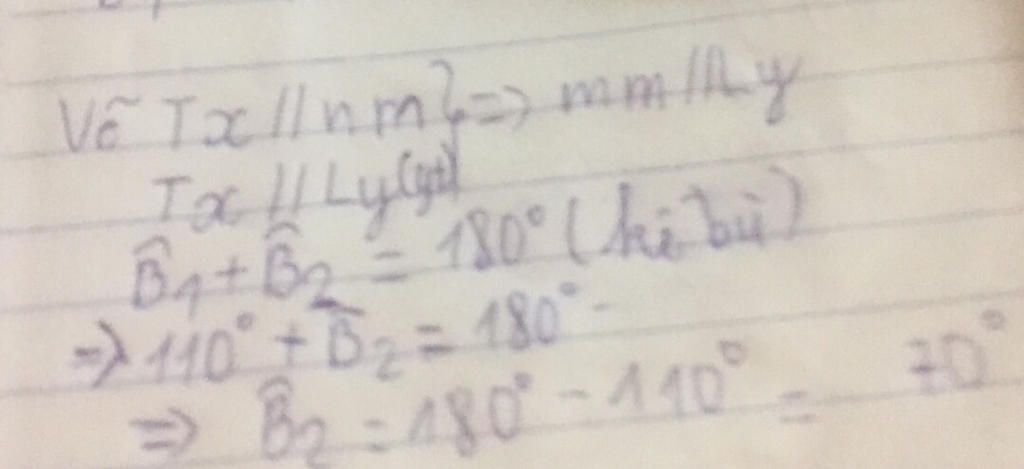 Vẽ Tx // nm } => mm // Ly
Tx // Ly (gt)
B̂₁ + B̂₂ = 180° (kề bù)
=> 110° + B̂₂ = 180°
=> B̂₂ = 180° - 110° = 70°